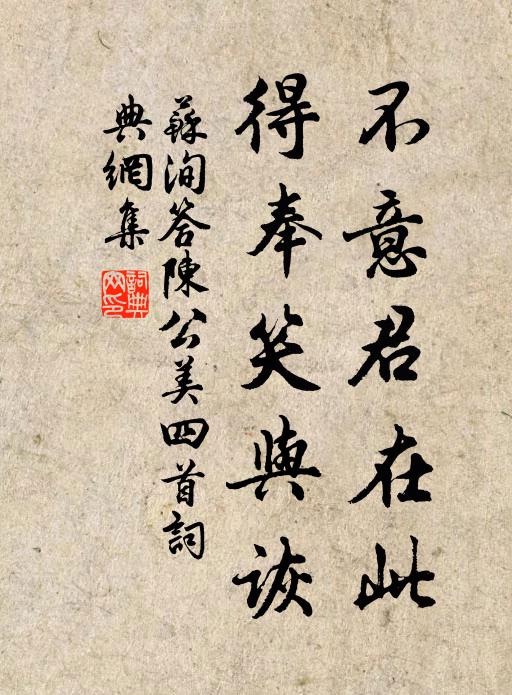 不意君在此
得奉笑與詼
蘇洵答陳公美四首詞
典網集
詞典
网印